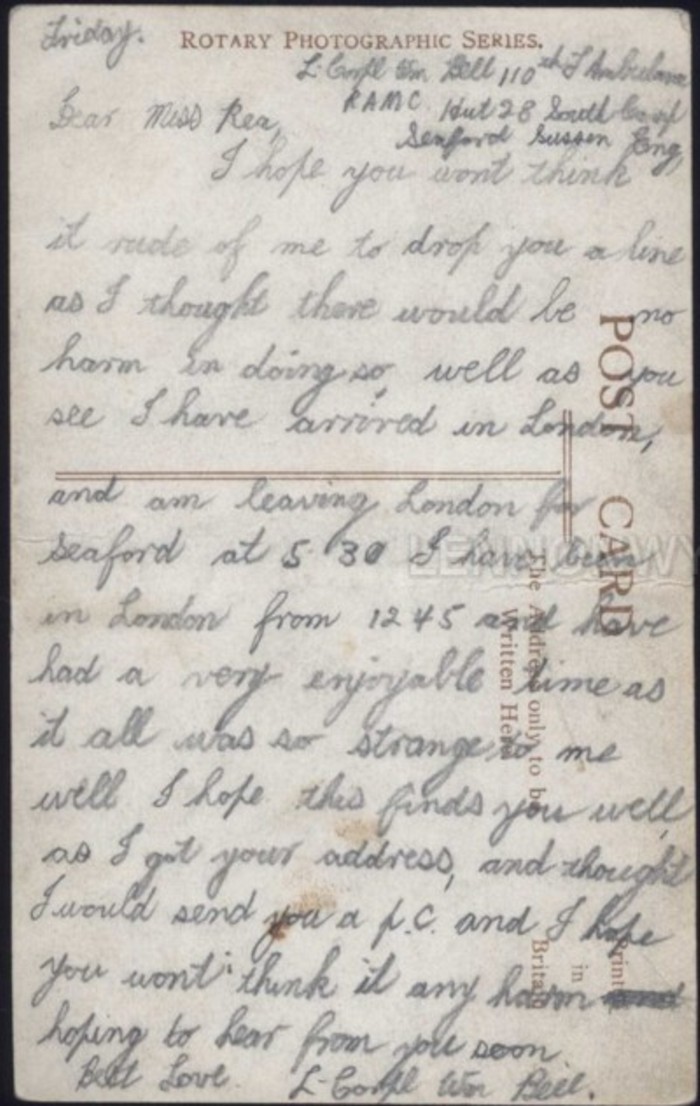 Friday.
ROTARY PHOTOGRAPHIC SERIES.
L-Corpl Wm Bell 110th F Ambulance
RAMC. Hut 28 South Camp
Seaford Sussex Eng,
Dear Miss Rea,
I hope you wont think
it rude of me to drop you a line
as I thought there would be no
harm in doing so, well as you
see I have arrived in London,
and am leaving London for
Seaford at 5 30 I have been
in London from 12 45 and have
had a very enjoyable time as
it all was so strange to me
well I hope this finds you well,
as I got your address, and thought
I would send you a p.C. and I hope
you wont think it any harm
hoping to hear from you soon.
Best Love. L-Corpl Wm Bell.
POST CARD
The Address only to be
Written Here
Printed
in
Britain